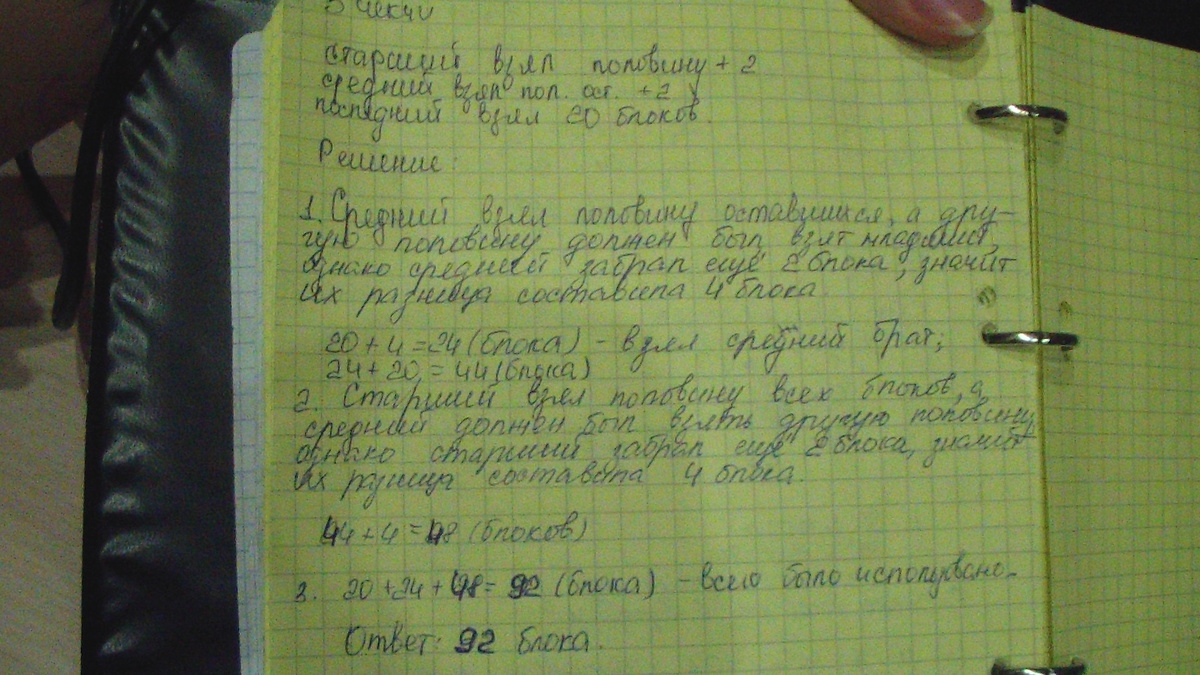 старший взял половину + 2
средний взял пол. ост. + 2
последний взял 20 блоков.
Решение:
1. Средний взял половину оставшихся, а дру-
гую половину должен был взят младший,
однако средний забрал еще 2 блока, значит
их разница составила 4 блока.
20 + 4 = 24 (блока) - взял средний брат;
24 + 20 = 44 (блока)
2. Старший взял половину всех блоков, а
средний должен был взять другую половину,
однако старший забрал еще 2 блока, значит
их разница составила 4 блока.
44 + 4 = 48 (блоков)
3. 20 + 24 + 48 = 92 (блока) - всего было использвано.
Ответ: 92 блока.